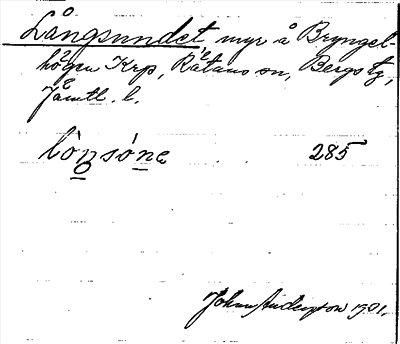 Långsundet, myr å Bryngel-
högen Krp, Rätans sn, Bergs tg,
Jämtl. l.
lòn̥són̲e 285
Johan Anderson 1901.